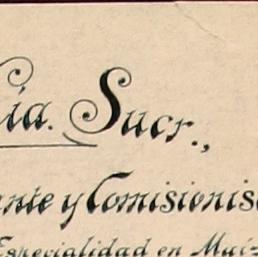 Cía. Sucr.,
ante y Comisionis
Especialidad en Maíz